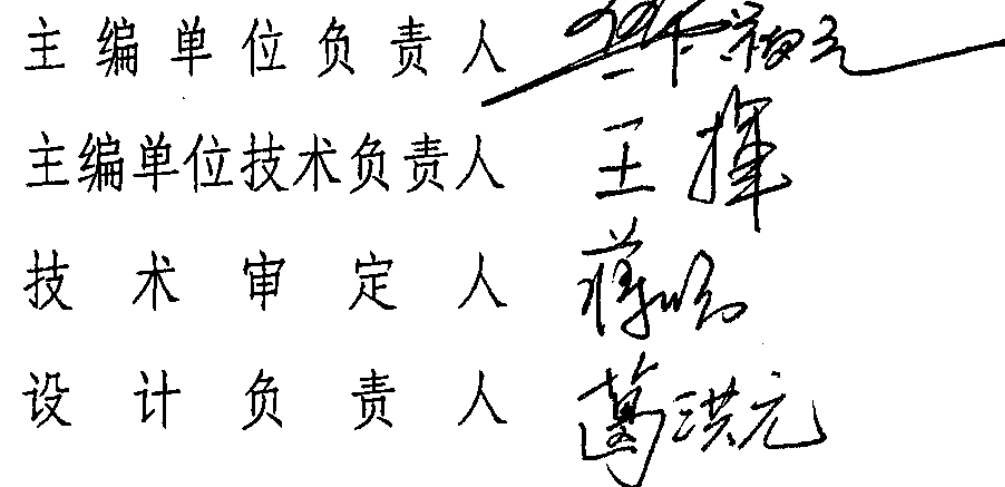 主编单位负责人
主编单位技术负责人 王揮
技术审定人 蒋
设计负责人 葛洪元